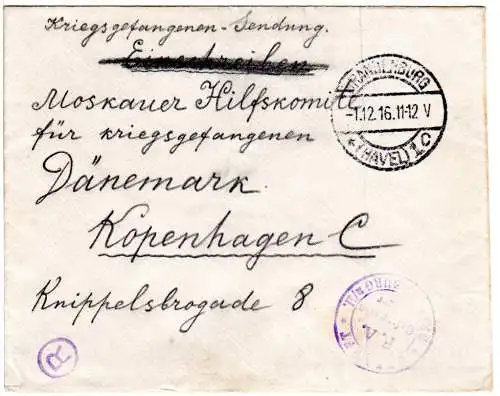 Kriegsgefangenen-Sendung.
Einschreiben
Moskauer Hilfskomite
für kriegsgefangenen
Dänemark
Kopenhagen C
Knippelsbrogade 8
BRANDENBURG
-1.12.16.11-12 V
* (HAVEL) 1 C
F. A.
R